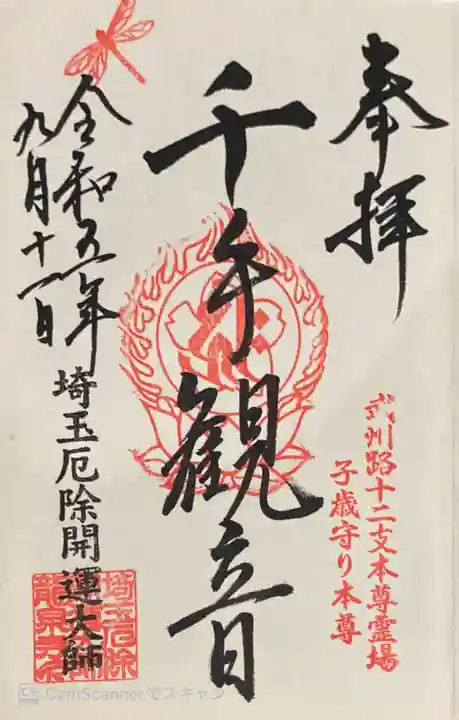 奉拝
武州路十二支本尊霊場
子歳守り本尊
千手観音
令和五年
九月十一日
埼玉厄除開運大師
埼玉厄除
龍泉寺
CS CamScannerでスキャン